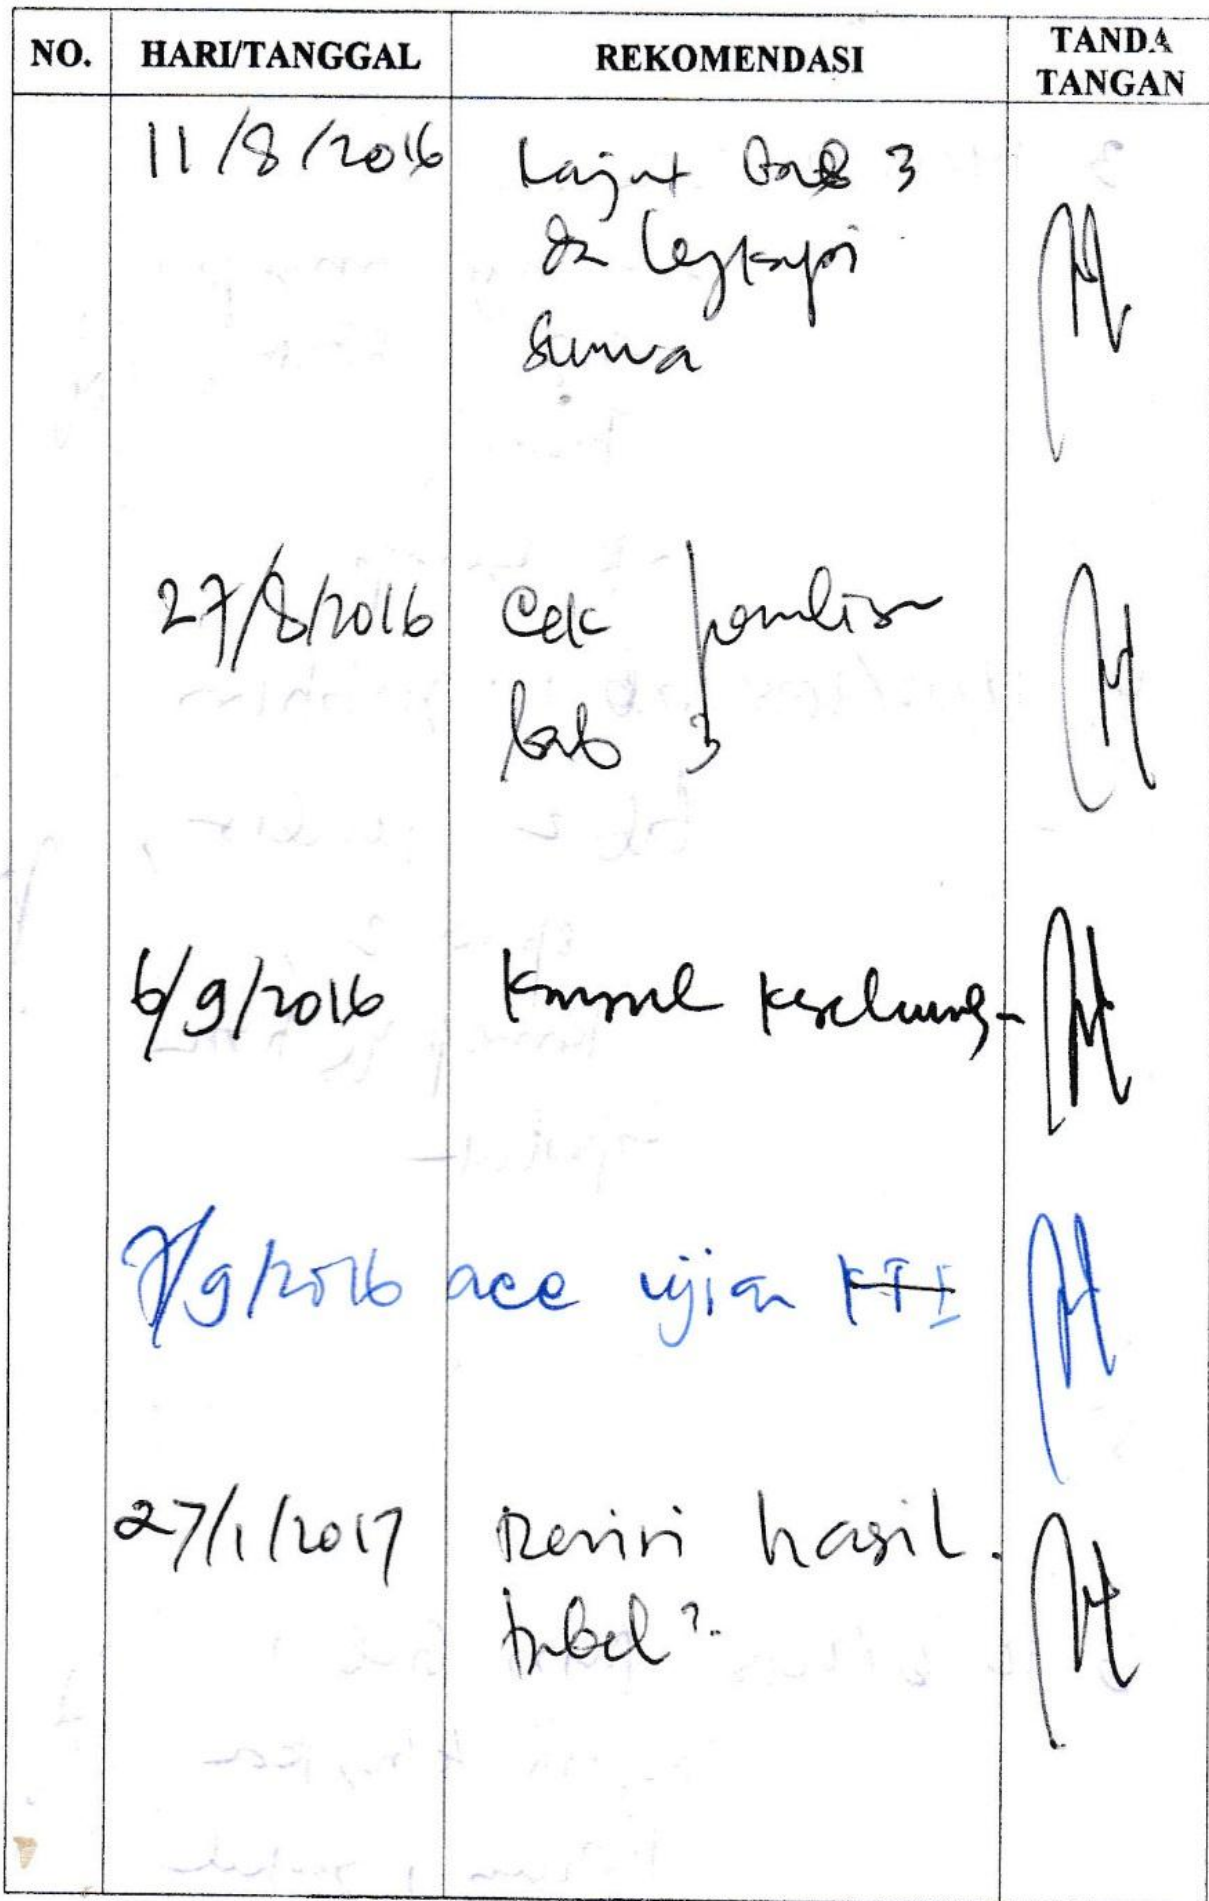 NO. HARI/TANGGAL REKOMENDASI TANDA TANGAN
11/8/2016 Lanjut Bab 3
dan lengkapi
semua
27/8/2016 Cek penulisan
bab 3
6/9/2016 Konsul keseluruhan
7/9/2016 acc ujian KTI
27/1/2017 Revisi hasil.
tabel ?.